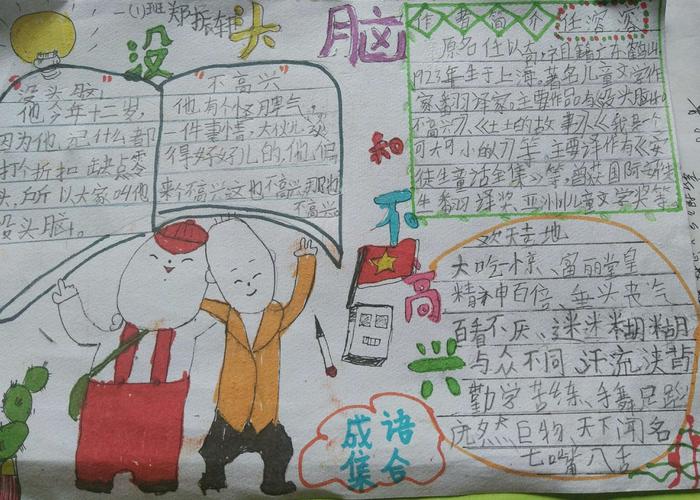 (1)班郑振轩
没头脑和不高兴
“没头脑”
他今年十二岁,
因为他,记什么都
打个折扣缺点零
头,所以大家叫他
没头脑。
“不高兴”
他有个怪脾气,
一件事情,大伙儿
得好好儿的,他但
来个不高兴这也不高兴那也
不高兴。
作者简介 任溶溶
原名任以奇,
1923年生于上海。著名儿童文学作
家翻译家。主要作品有《没头脑和
不高兴》、《土土的故事》《我是个
可大可小的人》等,主要译作有《安
徒生童话全集》等,曾获国际安徒
生翻译奖、亚洲儿童文学奖等
欢天喜地
大吃一惊、富丽堂皇
精神百倍、垂头丧气
百看不厌、迷迷糊糊
与众不同 汗流浃背
勤学苦练、手舞足蹈
庞然巨物、天下闻名
七嘴八舌
成语
集合